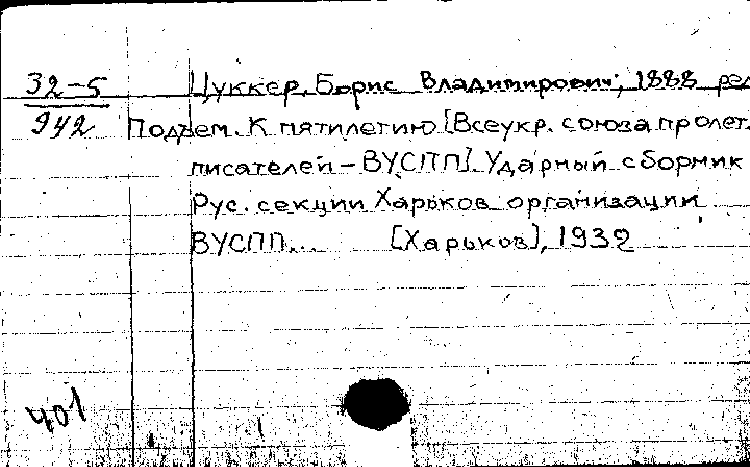 32-5
942
Цуккер, Борис Владимирович, 1888 ред
Подъем. К пятилетию [Всеукр. союза пролет.
писателей - ВУСПП]. Ударный сборник
Рус. секции Харьков. организации
ВУСПП... [Харьков], 1932
401